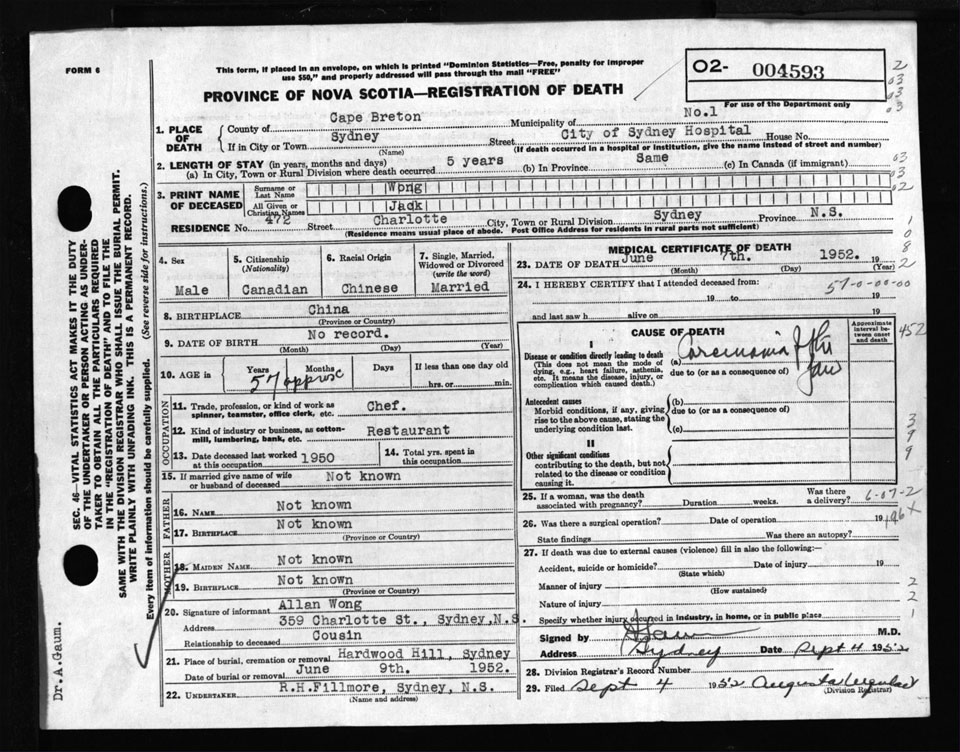 FORM 6
This form, if placed in an envelope, on which is printed "Dominion Statistics—Free, penalty for improper
use $50," and properly addressed will pass through the mail "FREE"
O2- 004593
For use of the Department only
PROVINCE OF NOVA SCOTIA—REGISTRATION OF DEATH
1. PLACE OF DEATH
County of Cape Breton Municipality of No.1
If in City or Town Sydney Street City of Sydney Hospital House No.
(Name) (If death occurred in a hospital or institution, give the name instead of street and number)
2. LENGTH OF STAY (in years, months and days)
(a) In City, Town or Rural Division where death occurred 5 years (b) In Province Same (c) In Canada (if immigrant)
3. PRINT NAME OF DECEASED
Surname or Last Name Wong
All Given or Christian Names Jack
RESIDENCE No. 472 Street Charlotte City, Town or Rural Division Sydney Province N.S.
(Residence means usual place of abode. Post Office Address for residents in rural parts not sufficient)
4. Sex Male
5. Citizenship (Nationality) Canadian
6. Racial Origin Chinese
7. Single, Married, Widowed or Divorced (write the word) Married
8. BIRTHPLACE China
(Province or Country)
9. DATE OF BIRTH No record.
(Month) (Day) (Year)
10. AGE in Years Months Days If less than one day old
57 approx hrs. or min.
OCCUPATION
11. Trade, profession, or kind of work as spinner, teamster, office clerk, etc. Chef.
12. Kind of industry or business, as cotton-mill, lumbering, bank, etc. Restaurant
13. Date deceased last worked at this occupation 1950
14. Total yrs. spent in this occupation
15. If married give name of wife or husband of deceased Not known
FATHER
16. NAME Not known
17. BIRTHPLACE Not known
(Province or Country)
MOTHER
18. MAIDEN NAME Not known
19. BIRTHPLACE Not known
(Province or Country)
20. Signature of informant Allan Wong
Address 359 Charlotte St., Sydney,N.S.
Relationship to deceased Cousin
21. Place of burial, cremation or removal Hardwood Hill, Sydney
Date of burial or removal June 9th. 1952.
22. UNDERTAKER R.H.Fillmore, Sydney, N.S.
MEDICAL CERTIFICATE OF DEATH
23. DATE OF DEATH June 7th. 1952. 19
(Month) (Day) (Year)
24. I HEREBY CERTIFY that I attended deceased from:
57-0-00-00
19 to 19
and last saw h alive on 19
CAUSE OF DEATH
Approximate interval between onset and death
I
Disease or condition directly leading to death
(This does not mean the mode of dying, e.g., heart failure, asthenia, etc. It means the disease, injury, or complication which caused death.)
(a) Carcinoma of the Jaw
due to (or as a consequence of)
Antecedent causes
Morbid conditions, if any, giving rise to the above cause, stating the underlying condition last.
(b)
due to (or as a consequence of)
(c)
II
Other significant conditions
contributing to the death, but not related to the disease or condition causing it.
25. If a woman, was the death associated with pregnancy? Duration weeks. Was there a delivery?
6-07-2
26. Was there a surgical operation? Date of operation 19
State findings Was there an autopsy?
27. If death was due to external causes (violence) fill in also the following:—
Accident, suicide or homicide? Date of injury 19
(State which)
Manner of injury
(How sustained)
Nature of injury
Specify whether injury occurred in industry, in home, or in public place
Signed by M.D.
Address Sydney Date Sept 4 1952
28. Division Registrar's Record Number
29. Filed Sept 4 1952 Augusta
(Division Registrar)
SEC. 46—VITAL STATISTICS ACT MAKES IT THE DUTY
OF THE UNDERTAKER OR PERSON ACTING AS UNDER-
TAKER TO OBTAIN ALL THE PARTICULARS REQUIRED
IN THE "REGISTRATION OF DEATH" AND TO FILE THE
SAME WITH THE DIVISION REGISTRAR WHO SHALL ISSUE THE BURIAL PERMIT.
WRITE PLAINLY WITH UNFADING INK. THIS IS A PERMANENT RECORD.
Every item of information should be carefully supplied. (See reverse side for instructions.)
Dr.A.Gaum.